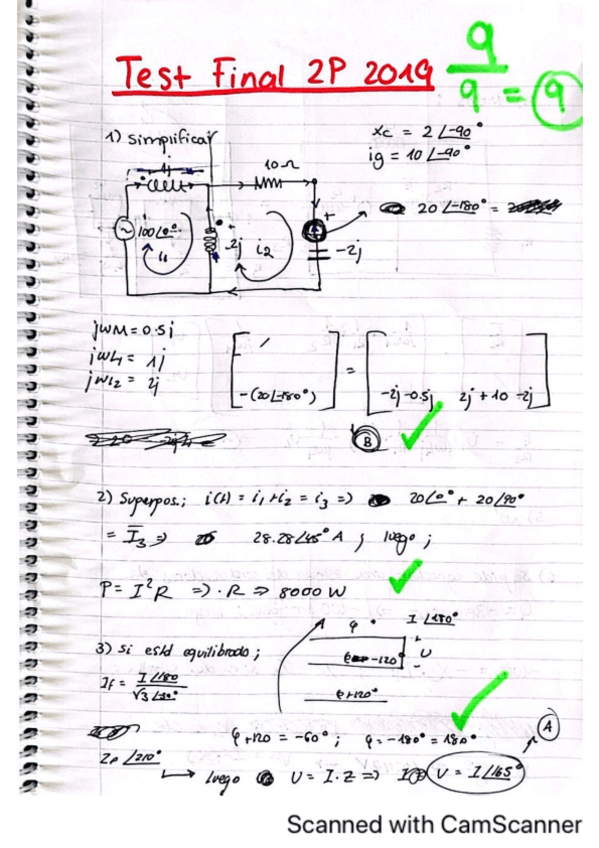 Test Final 2P 2019
9
9 = 9
1) Simplificar
xc = 2∠-90°
ig = 10∠-90°
10Ω
20∠-180° =
100∠0°
i1
2j
i2
-2j
jωM = 0.5j
jωL1 = 1j
jωL2 = 2j
-(20∠-180°)
=
-2j-0.5j 2j+10-2j
B
2) Superpos.; i(t) = i1 + i2 = i3 => 20∠0° + 20∠90°
= I3 => 28.28∠45° A ; luego ;
P = I²R => · R => 8000 W
3) Si está equilibrado ;
φ I∠180°
φ -120
U
φ+120°
If = I∠180
√3∠30°
φ+120 = -60° ; φ = -180° = 180°
A
∠210°
luego U = I·Z => U = I∠165°
Scanned with CamScanner